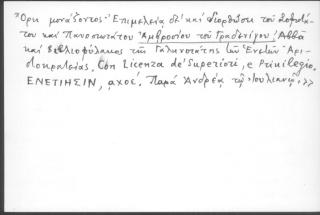 Ὄρει μονάζοντος· Ἐπιμελείᾳ δὲ καὶ διορθώσει τοῦ Σοφωτά-
του καὶ Πανοσιωτάτου Ἀμβροσίου τοῦ Γραδενίγου, Ἀββᾶ
καὶ Βιβλιοφύλακος τῆς Γαληνοτάτης τῶν Ἐνετῶν Ἀρι-
στοκρατείας. Con Licenza de' Superiori, e Privilegio.
ΕΝΕΤΙΗΣΙΝ, αχοϛ'. Παρὰ Ἀνδρέᾳ τῷ Ἰουλιανῷ.>>